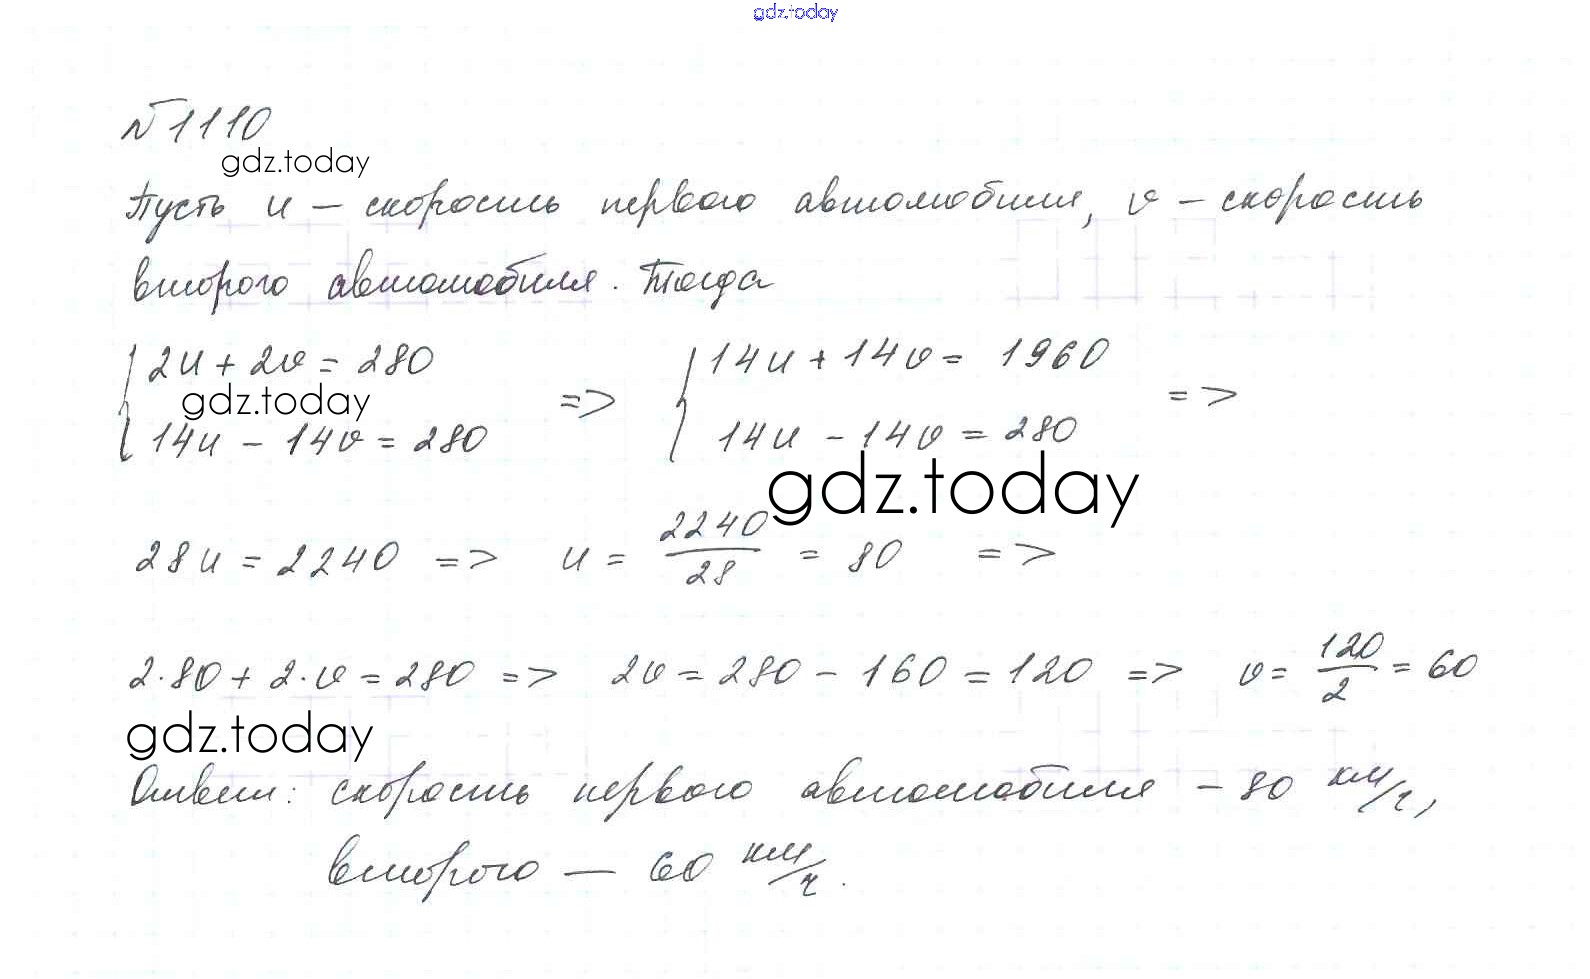 gdz.today
№1110
gdz.today
Пусть u – скорость первого автомобиля, v – скорость
второго автомобиля. Тогда
{2u + 2v = 280 => {14u + 14v = 1960 =>
gdz.today
14u - 14v = 280 14u - 14v = 280
gdz.today
28u = 2240 => u = 2240/28 = 80 =>
2·80 + 2·v = 280 => 2v = 280 - 160 = 120 => v = 120/2 = 60
gdz.today
Ответ: скорость первого автомобиля – 80 км/ч,
второго — 60 км/ч.